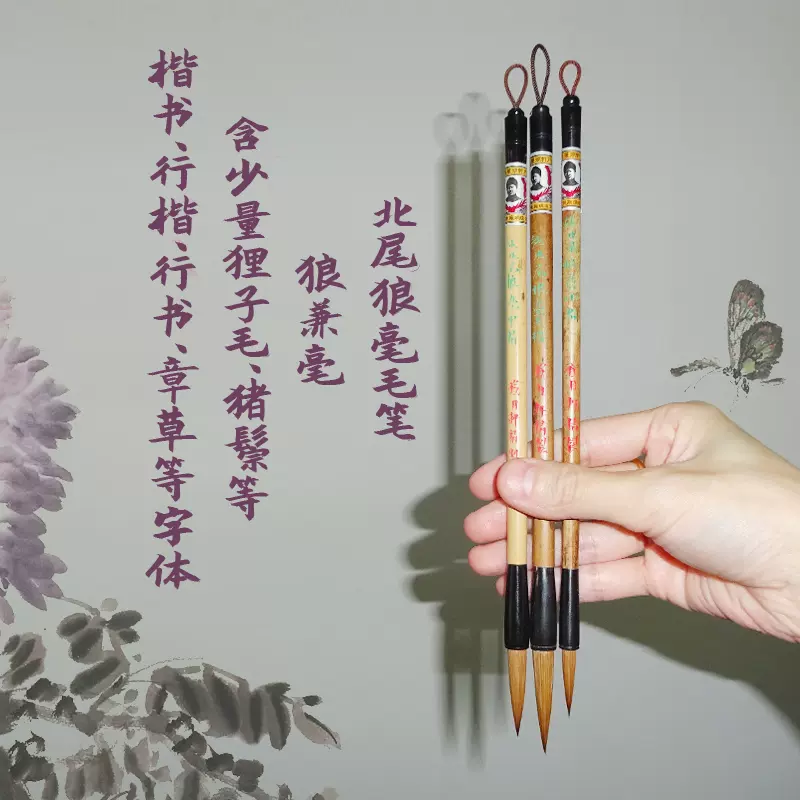 北尾狼毫毛笔
狼兼毫
含少量狸子毛、猪鬃等
楷书、行楷、行书、章草等字体